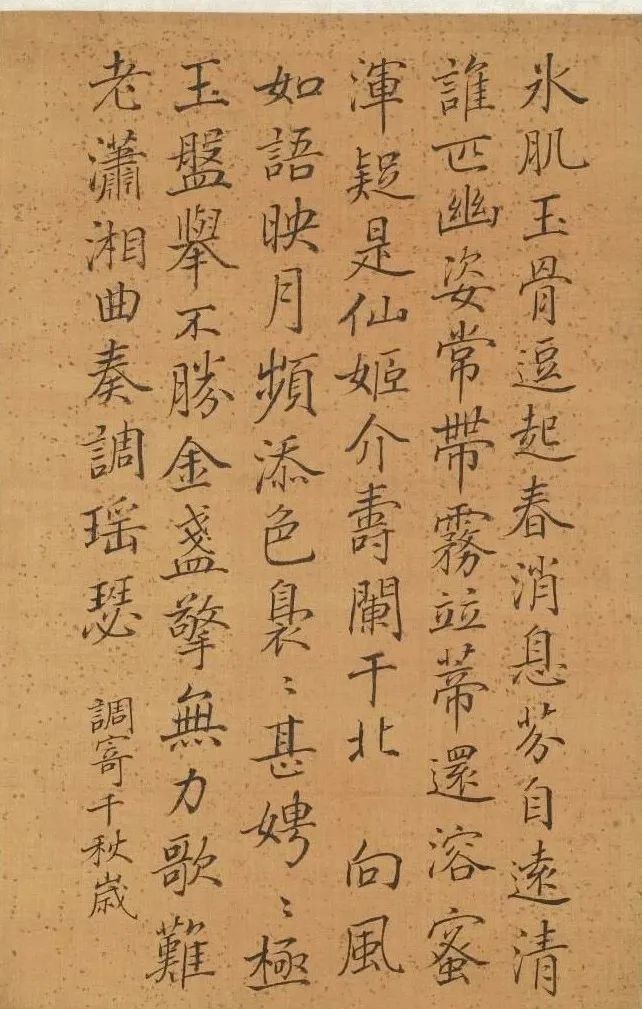 氷肌玉骨逗起春消息芬自遠清
誰匹幽姿常帶霧竝蒂還溶蜜
渾疑是仙姬介壽闌干北 向風
如語映月頻添色裊〻甚娉〻極
玉盤舉不勝金盞擎無力歌難
老瀟湘曲奏調瑶瑟 調寄千秋歲